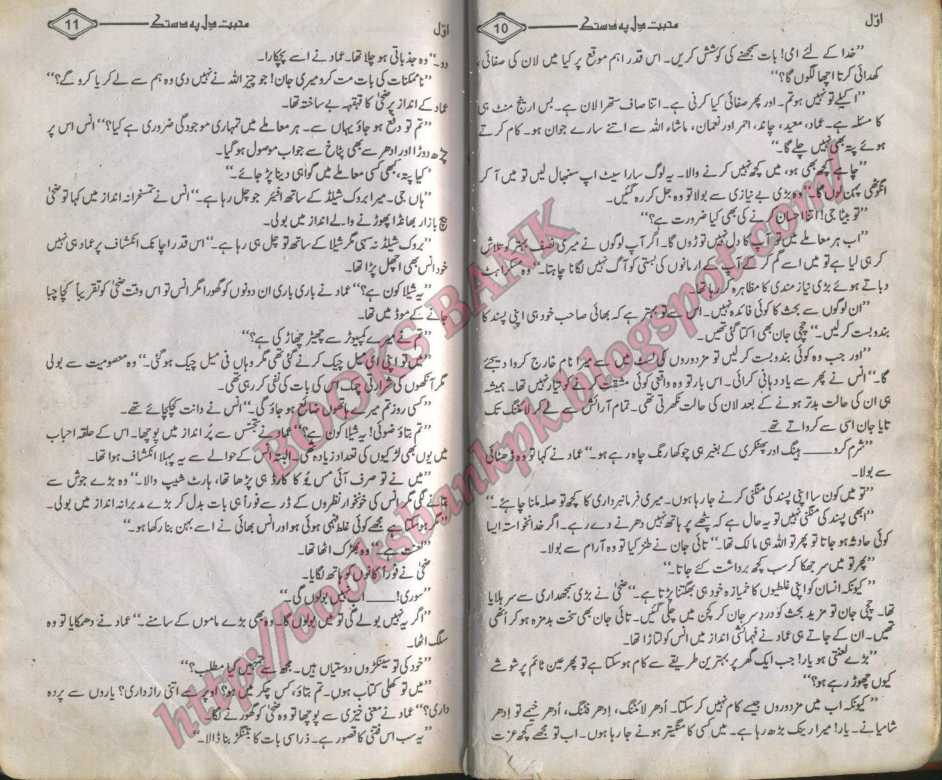 اوّل
10
محبت دل پہ دستک
’’خدا کے لئے امی! بات سمجھنے کی کوشش کریں۔ اس قدر اہم موقع پر کیا میں لان کی صفائی،
کھدائی کرتا اچھا لگوں گا؟‘‘
’’اکیلے تو نہیں ہو تم۔ اور پھر صفائی کیا کرنی ہے۔ اتنا صاف ستھرا لان ہے۔ بس ارینج منٹ ہی
کا مسئلہ ہے۔ عماد، معید، چاند، احمر اور نعمان، ماشاء اللہ سے اتنے سارے جوان ہو۔ کام کرتے
ہوئے پتہ بھی نہیں چلے گا۔‘‘
’’چاہے کچھ بھی ہو، میں کچھ نہیں کرنے والا۔ یہ لوگ سارا سیٹ اپ سنبھال لیں تو میں آ کر
انگوٹھی پہن لوں گا۔‘‘ وہ بڑی بے نیازی سے بولا تو وہ جل کر رہ گئیں۔
’’تو بیٹا جی! اتنا احسان کرنے کی بھی کیا ضرورت ہے؟‘‘
’’اب ہر معاملے میں تو آپ کا دل نہیں توڑوں گا۔ اگر آپ لوگوں نے میری نصف بہتر کو تلاش
کر ہی لیا ہے تو میں اسے گم کر کے آپ کے ارمانوں کی بستی کو آگ نہیں لگانا چاہتا۔‘‘ وہ مسکراہٹ
دباتے ہوئے بڑی نیاز مندی کا مظاہرہ کر رہا تھا۔
’’ان لوگوں سے بحث کا کوئی فائدہ نہیں۔ اس سے تو بہتر ہے کہ بھائی صاحب خود ہی اپنی پسند کا
بندوبست کر لیں۔‘‘ چچی جان بھی اکتا گئی تھیں۔
’’اور جب وہ کوئی بندوبست کر لیں تو مزدوروں کی لسٹ میں سے میرا نام خارج کروا دیجئے
گا۔‘‘ انس نے پھر سے یاد دہانی کرائی۔ اس بار تو وہ واقعی کوئی مشقت کرنے کو تیار نہیں تھا۔ ہمیشہ
ہی ان کی حالت بدتر ہونے کے بعد لان کی حالت نکھرتی تھی۔ تمام آرائش سے لے کر لائٹنگ تک
تایا جان اسی سے کرواتے تھے۔
’’شرم کرو۔ ہینگ اور پھٹکری کے بغیر ہی چوکھا رنگ چاہ رہے ہو۔‘‘ عماد نے کہا تو وہ ڈھٹائی
سے بولا۔
’’تو میں کون سا اپنی پسند کی منگنی کرنے جا رہا ہوں۔ میری فرمانبرداری کا کچھ تو صلہ ملنا چاہئے۔‘‘
’’ابھی پسند کی منگنی نہیں تو یہ حال ہے کہ پٹھے پر ہاتھ نہیں دھرنے دے رہے۔ اگر خدانخواستہ ایسا
کوئی حادثہ ہو جاتا تو پھر تو اللہ ہی مالک تھا۔‘‘ تائی جان نے طنز کیا تو وہ آرام سے بولا۔
’’پھر تو میں سر جھکا کر سب کچھ برداشت کئے جاتا۔‘‘
’’کیونکہ انسان کو اپنی غلطیوں کا خمیازہ خود ہی بھگتنا پڑتا ہے۔‘‘ ضحیٰ نے بڑی سمجھداری سے سر ہلایا
تھا۔ چچی جان تو مزید بحث کو درد سر جان کر کچن میں چلی گئیں۔ تائی جان بھی سخت بدمزہ ہو کر اٹھی
تھیں۔ ان کے جاتے ہی عماد نے فہمائشی انداز میں انس کو تاڑا تھا۔
’’بڑے لعنتی ہو یار! جب ایک گھر پر بہترین طریقے سے کام ہو سکتا ہے تو پھر عین ٹائم پر شوشے
کیوں چھوڑ رہے ہو؟‘‘
’’کیونکہ اب میں مزدوروں جیسے کام نہیں کر سکتا۔ اُدھر لائٹنگ، اِدھر فٹنگ، اُدھر خیمے تو اِدھر
شامیانے۔ یار! میرا رینک بڑھ رہا ہے۔ میں کسی کا منگیتر ہونے جا رہا ہوں۔ اب تو مجھے کچھ عزت
اوّل
محبت دل پہ دستک
11
دو۔‘‘ وہ جذباتی ہو چلا تھا۔ عماد نے اسے پچکارا۔
’’ناممکنات کی بات مت کرو میری جان! جو چیز اللہ نے نہیں دی وہ ہم سے لے کر یا کرو گے؟‘‘
عماد کے انداز پر ضحیٰ کا قہقہہ بے ساختہ تھا۔
’’تم تو دفع ہو جاؤ یہاں سے۔ ہر معاملے میں تمہاری موجودگی ضروری ہے کیا؟‘‘ انس اس پر
چڑھ دوڑا اور ادھر سے بھی پٹاخ سے جواب موصول ہو گیا۔
’’کیا پتہ، کبھی کسی معاملے میں گواہی دینا پڑ جائے۔‘‘
’’ہاں جی۔ میرا بروک شیلڈ کے ساتھ افیئر جو چل رہا ہے۔‘‘ انس نے تمسخرانہ انداز میں کہا تو ضحیٰ
بیچ بازار بھانڈا پھوڑنے والے انداز میں بولی۔
’’بروک شیلڈ نہ سہی مگر شیلا کے ساتھ تو چل ہی رہا ہے۔‘‘ اس قدر اچانک انکشاف پر عماد ہی نہیں
خود انس بھی اچھل پڑا تھا۔
’’یہ شیلا کون ہے؟‘‘ عماد نے باری باری ان دونوں کو گھورا مگر انس تو اس وقت ضحیٰ کو تقریباً کچا چبا
جانے کے موڈ میں تھا۔
’’تم نے میرے کمپیوٹر سے چھیڑ چھاڑ کی ہے؟‘‘
’’میں تو اپنی ای میل چیک کرنے گئی تھی مگر وہاں فی میل چیک ہو گئی۔‘‘ وہ معصومیت سے بولی
مگر آنکھوں کی شرارتی چمک اس کی بات کی نفی کر رہی تھی۔
’’کسی روز تم میرے ہاتھوں ضائع ہو جاؤ گی۔‘‘ انس نے دانت کچکچائے تھے۔
’’تم بتاؤ ضوئی! یہ شیلا کون ہے؟‘‘ عماد نے تجسس سے پُر انداز میں پوچھا۔ اس کے حلقۂ احباب
میں یوں بھی لڑکیوں کی تعداد زیادہ تھی۔ البتہ انس کے حوالے سے یہ پہلا انکشاف ہوا تھا۔
’’میں نے تو صرف آئی مس یو کا کارڈ ہی پڑھا تھا، ہارٹ شیپ والا۔‘‘ وہ بڑے جوش سے
بتانے لگی مگر انس کی خونخوار نظروں کے ڈر سے فوراً ہی بات بدل کر بڑے مدبرانہ انداز میں بولی۔
’’مگر ہو سکتا ہے مجھے کوئی غلط فہمی ہوئی ہو اور انس بھائی نے اسے بہن بنا رکھا ہو۔‘‘
’’لعنت ہے۔‘‘ وہ بھڑک اٹھا تھا۔
ضحیٰ نے فوراً کانوں کو ہاتھ لگایا۔
’’سوری! اب نہیں بولوں گی۔‘‘
’’اگر یہ نہیں بولے گی تو میں بولوں گا۔ وہ بھی بڑے ماموں کے سامنے۔‘‘ عماد نے دھمکایا تو وہ
سلگ اٹھا۔
’’خود کی تو سینکڑوں دوستیاں ہیں۔ مجھ سے تمہیں کیا مطلب؟‘‘
’’میں تو کھلی کتاب ہوں۔ تم بتاؤ، کس چکر میں ہو؟ اوپر سے اتنی رازداری؟ یاروں سے پردہ
داری؟‘‘ عماد نے معنی خیزی سے پوچھا تو وہ ضحیٰ کو گھورنے لگا۔
’’یہ سب اس فتنی کا قصور ہے۔ ذرا سی بات کا بتنگڑ بنا ڈالا۔‘‘
BOOKS BANK
http://booksbankpk.blogspot.com/